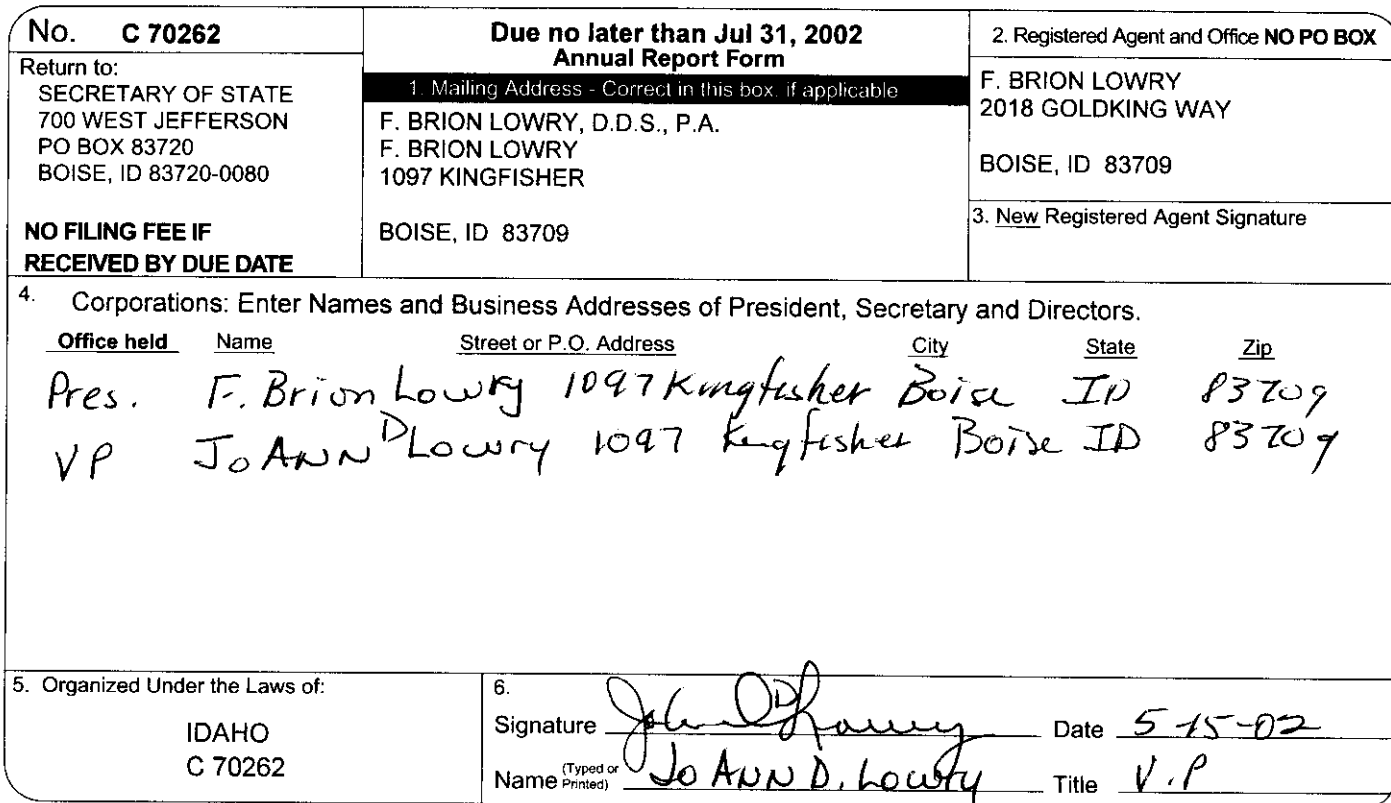 No. C 70262
Return to:
SECRETARY OF STATE
700 WEST JEFFERSON
PO BOX 83720
BOISE, ID 83720-0080
NO FILING FEE IF
RECEIVED BY DUE DATE
Due no later than Jul 31, 2002
Annual Report Form
1. Mailing Address - Correct in this box, if applicable
F. BRION LOWRY, D.D.S., P.A.
F. BRION LOWRY
1097 KINGFISHER
BOISE, ID 83709
2. Registered Agent and Office NO PO BOX
F. BRION LOWRY
2018 GOLDKING WAY
BOISE, ID 83709
3. New Registered Agent Signature
4. Corporations: Enter Names and Business Addresses of President, Secretary and Directors.
Office held Name Street or P.O. Address City State Zip
Pres. F. Brion Lowry 1097 Kingfisher Boise ID 83709
VP JoANN D Lowry 1097 Kingfisher Boise ID 83709
5. Organized Under the Laws of:
IDAHO
C 70262
6.
Signature JoAnn D Lowry Date 5-15-02
Name (Typed or Printed) Jo ANN D. Lowry Title V.P